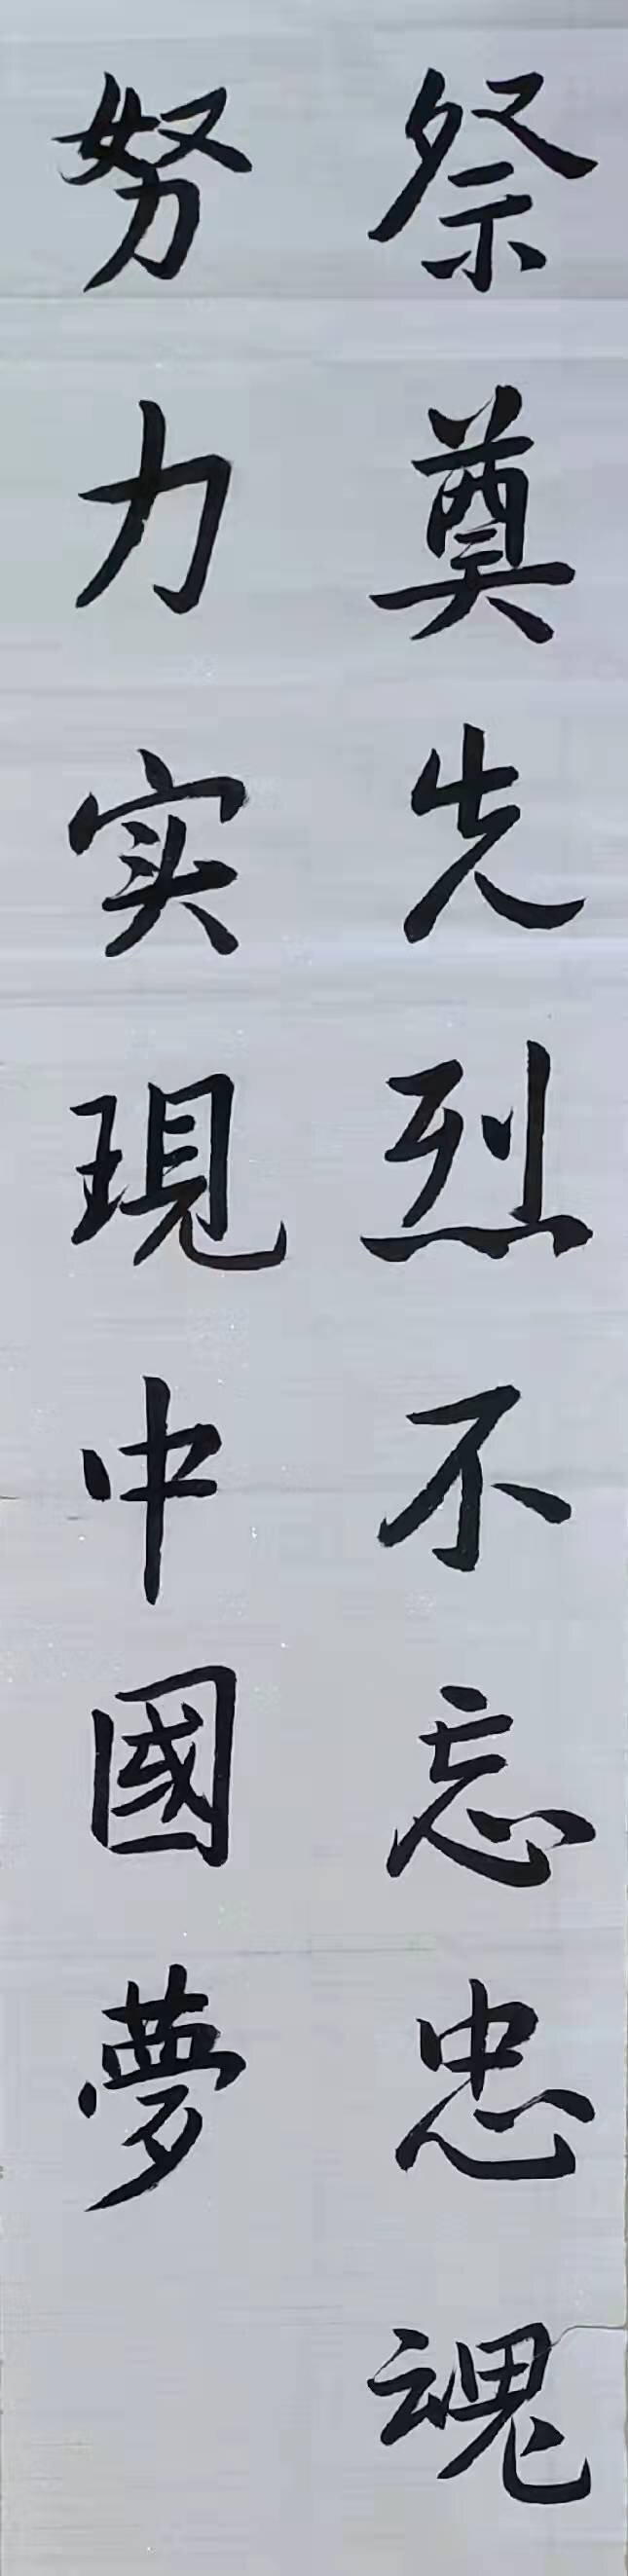 祭奠先烈不忘忠魂
努力实現中國夢